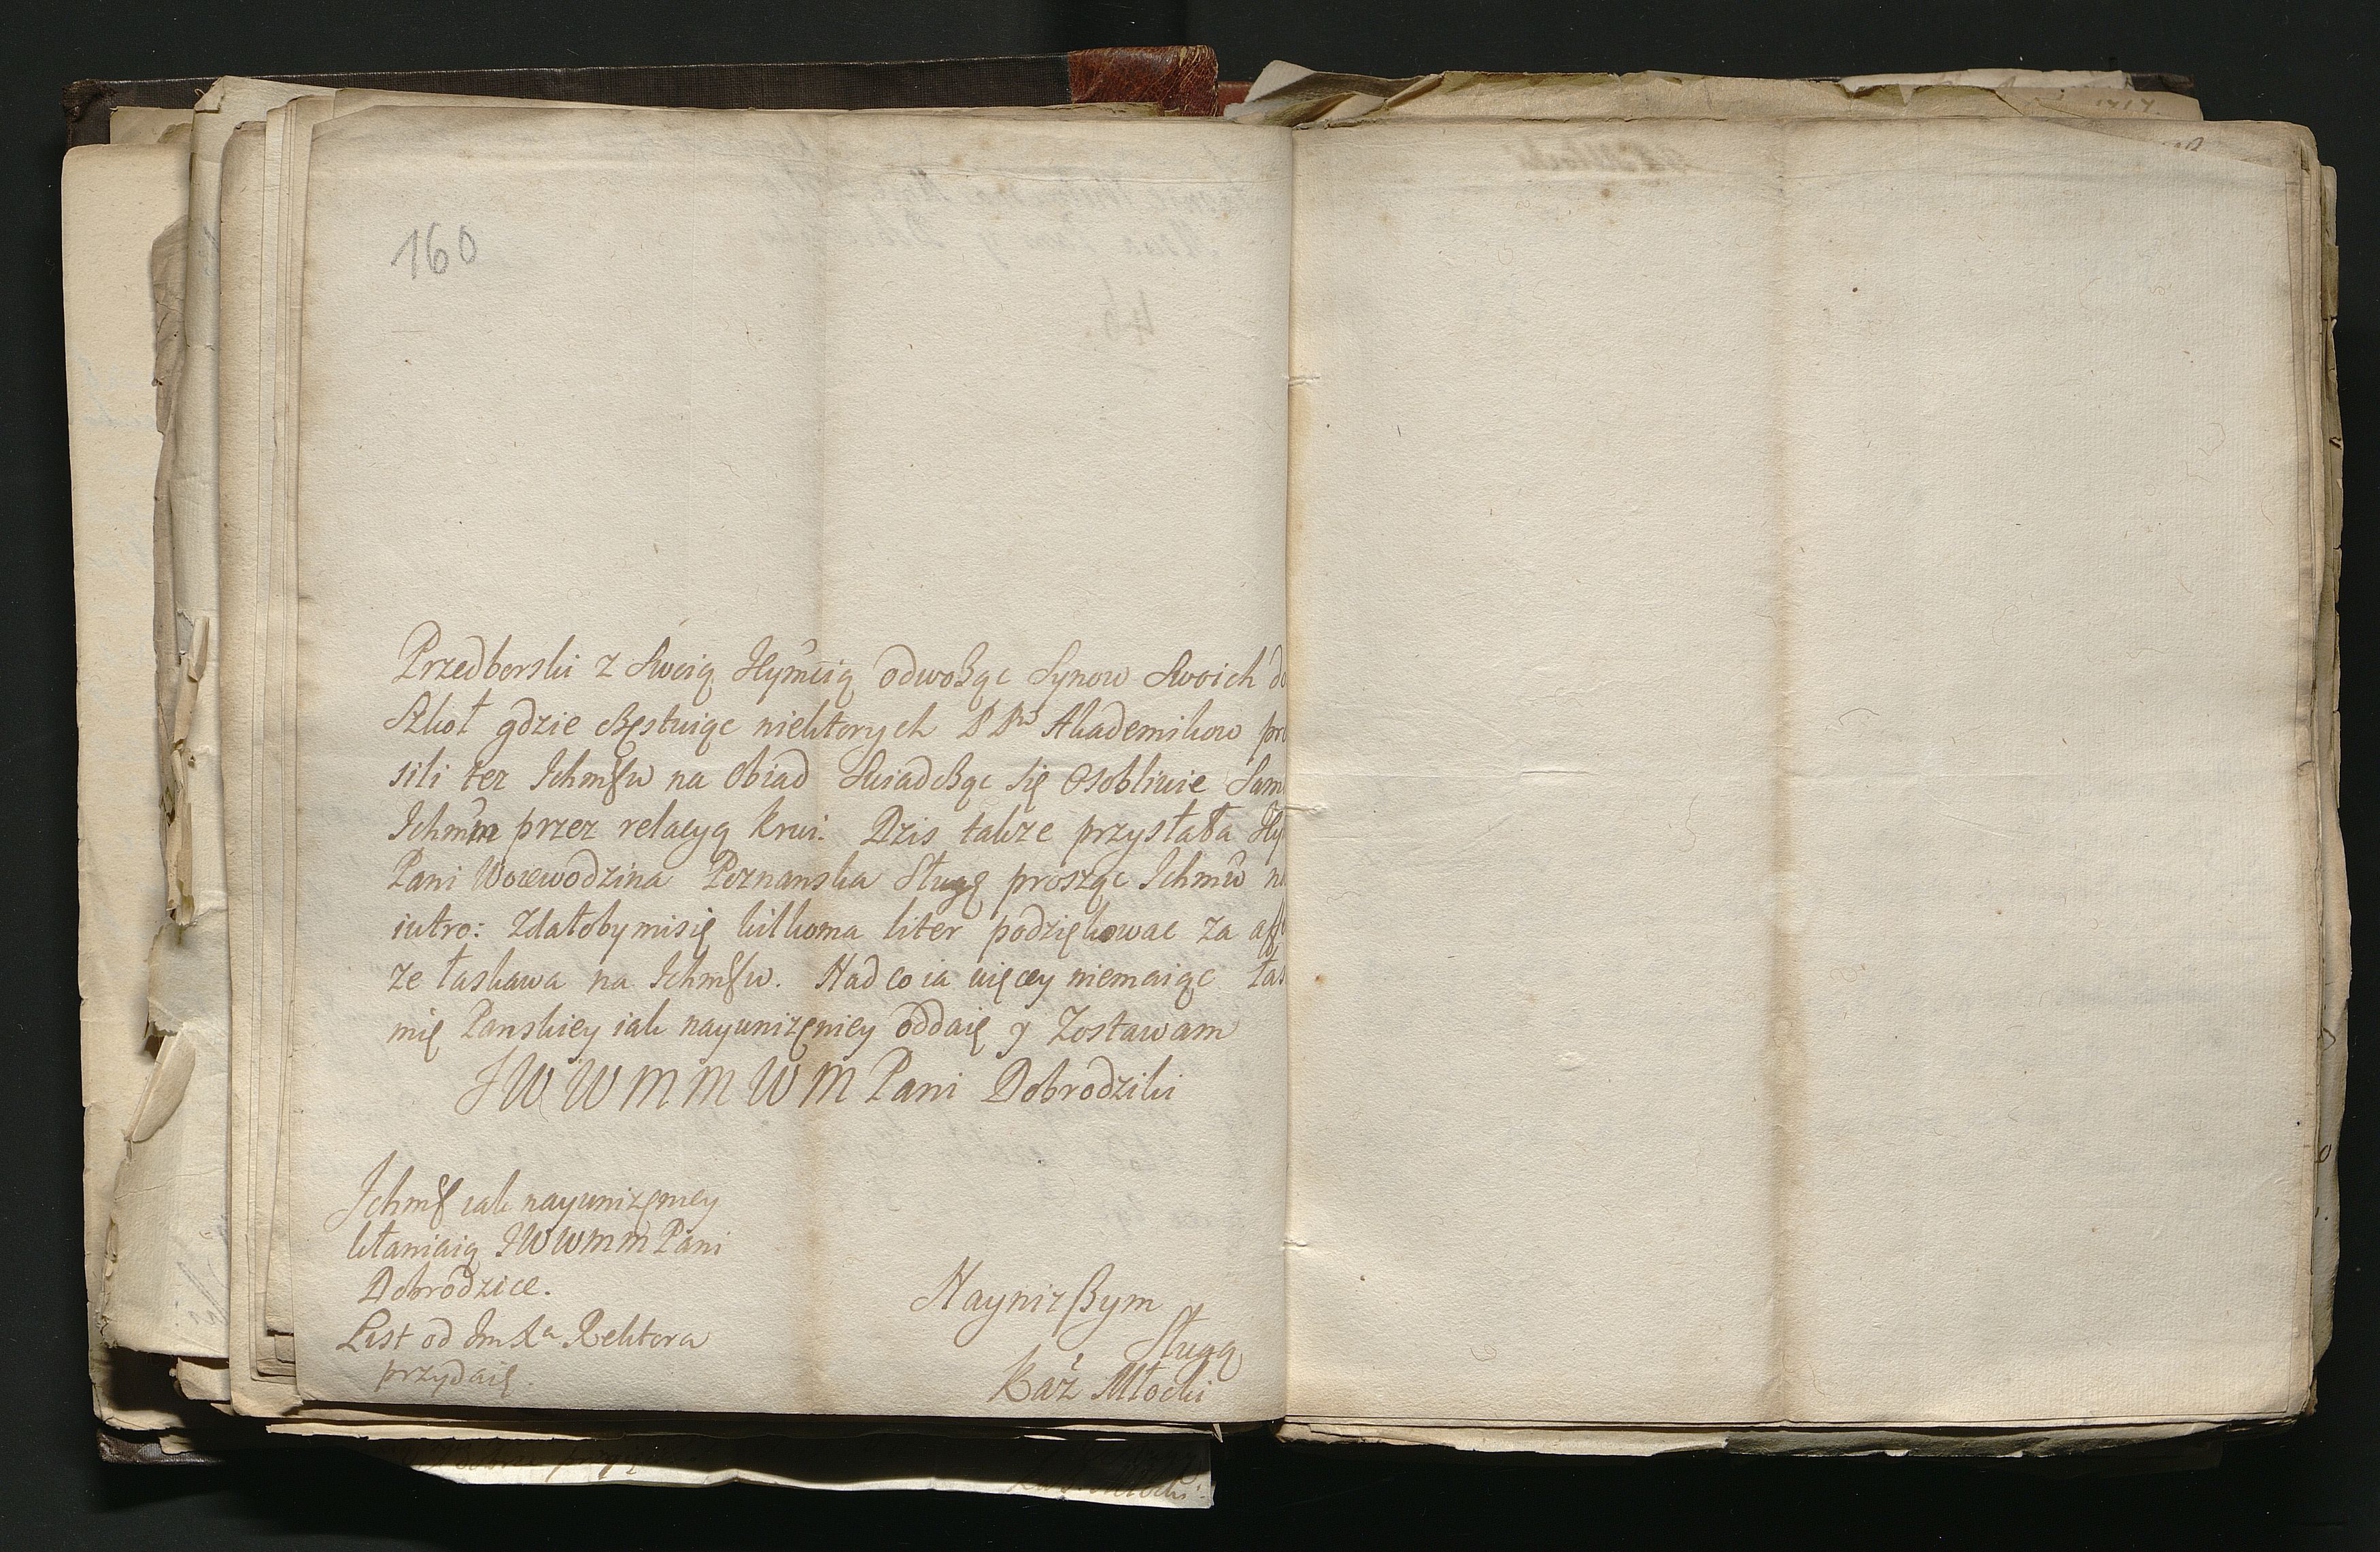 160
Przedborski z Swoią Jeymcią odwoząc Synow Swoich do
Szkoł gdzie częstuiąc niektorych P Pw Akademikow pro
sili tez Ichmśw na obiad Swiadcząc się Osobliwie Sam
Ichmm przez relacyą krwi. Dzis takze przysłała Jey
Pani Woiewodzina Poznanska Sługę prosząc Ichmw na
iutro: Zdałoby misię kilkoma liter podziękowac za aff
ze łaskawa na Ichmśw. Nad co ia więcey niemaiąc łas
mię Panskiey iak nayunizęniey oddaię y Zostawam
JWWMMWM Pani Dobrodziki
Ichmś iak nayunizęniey
kłaniaią JWWMM Pani
Dobrodzice.
List od Im Xa Rektora
przydaię.
Nayniższym
Sługą
Kaź Młocki